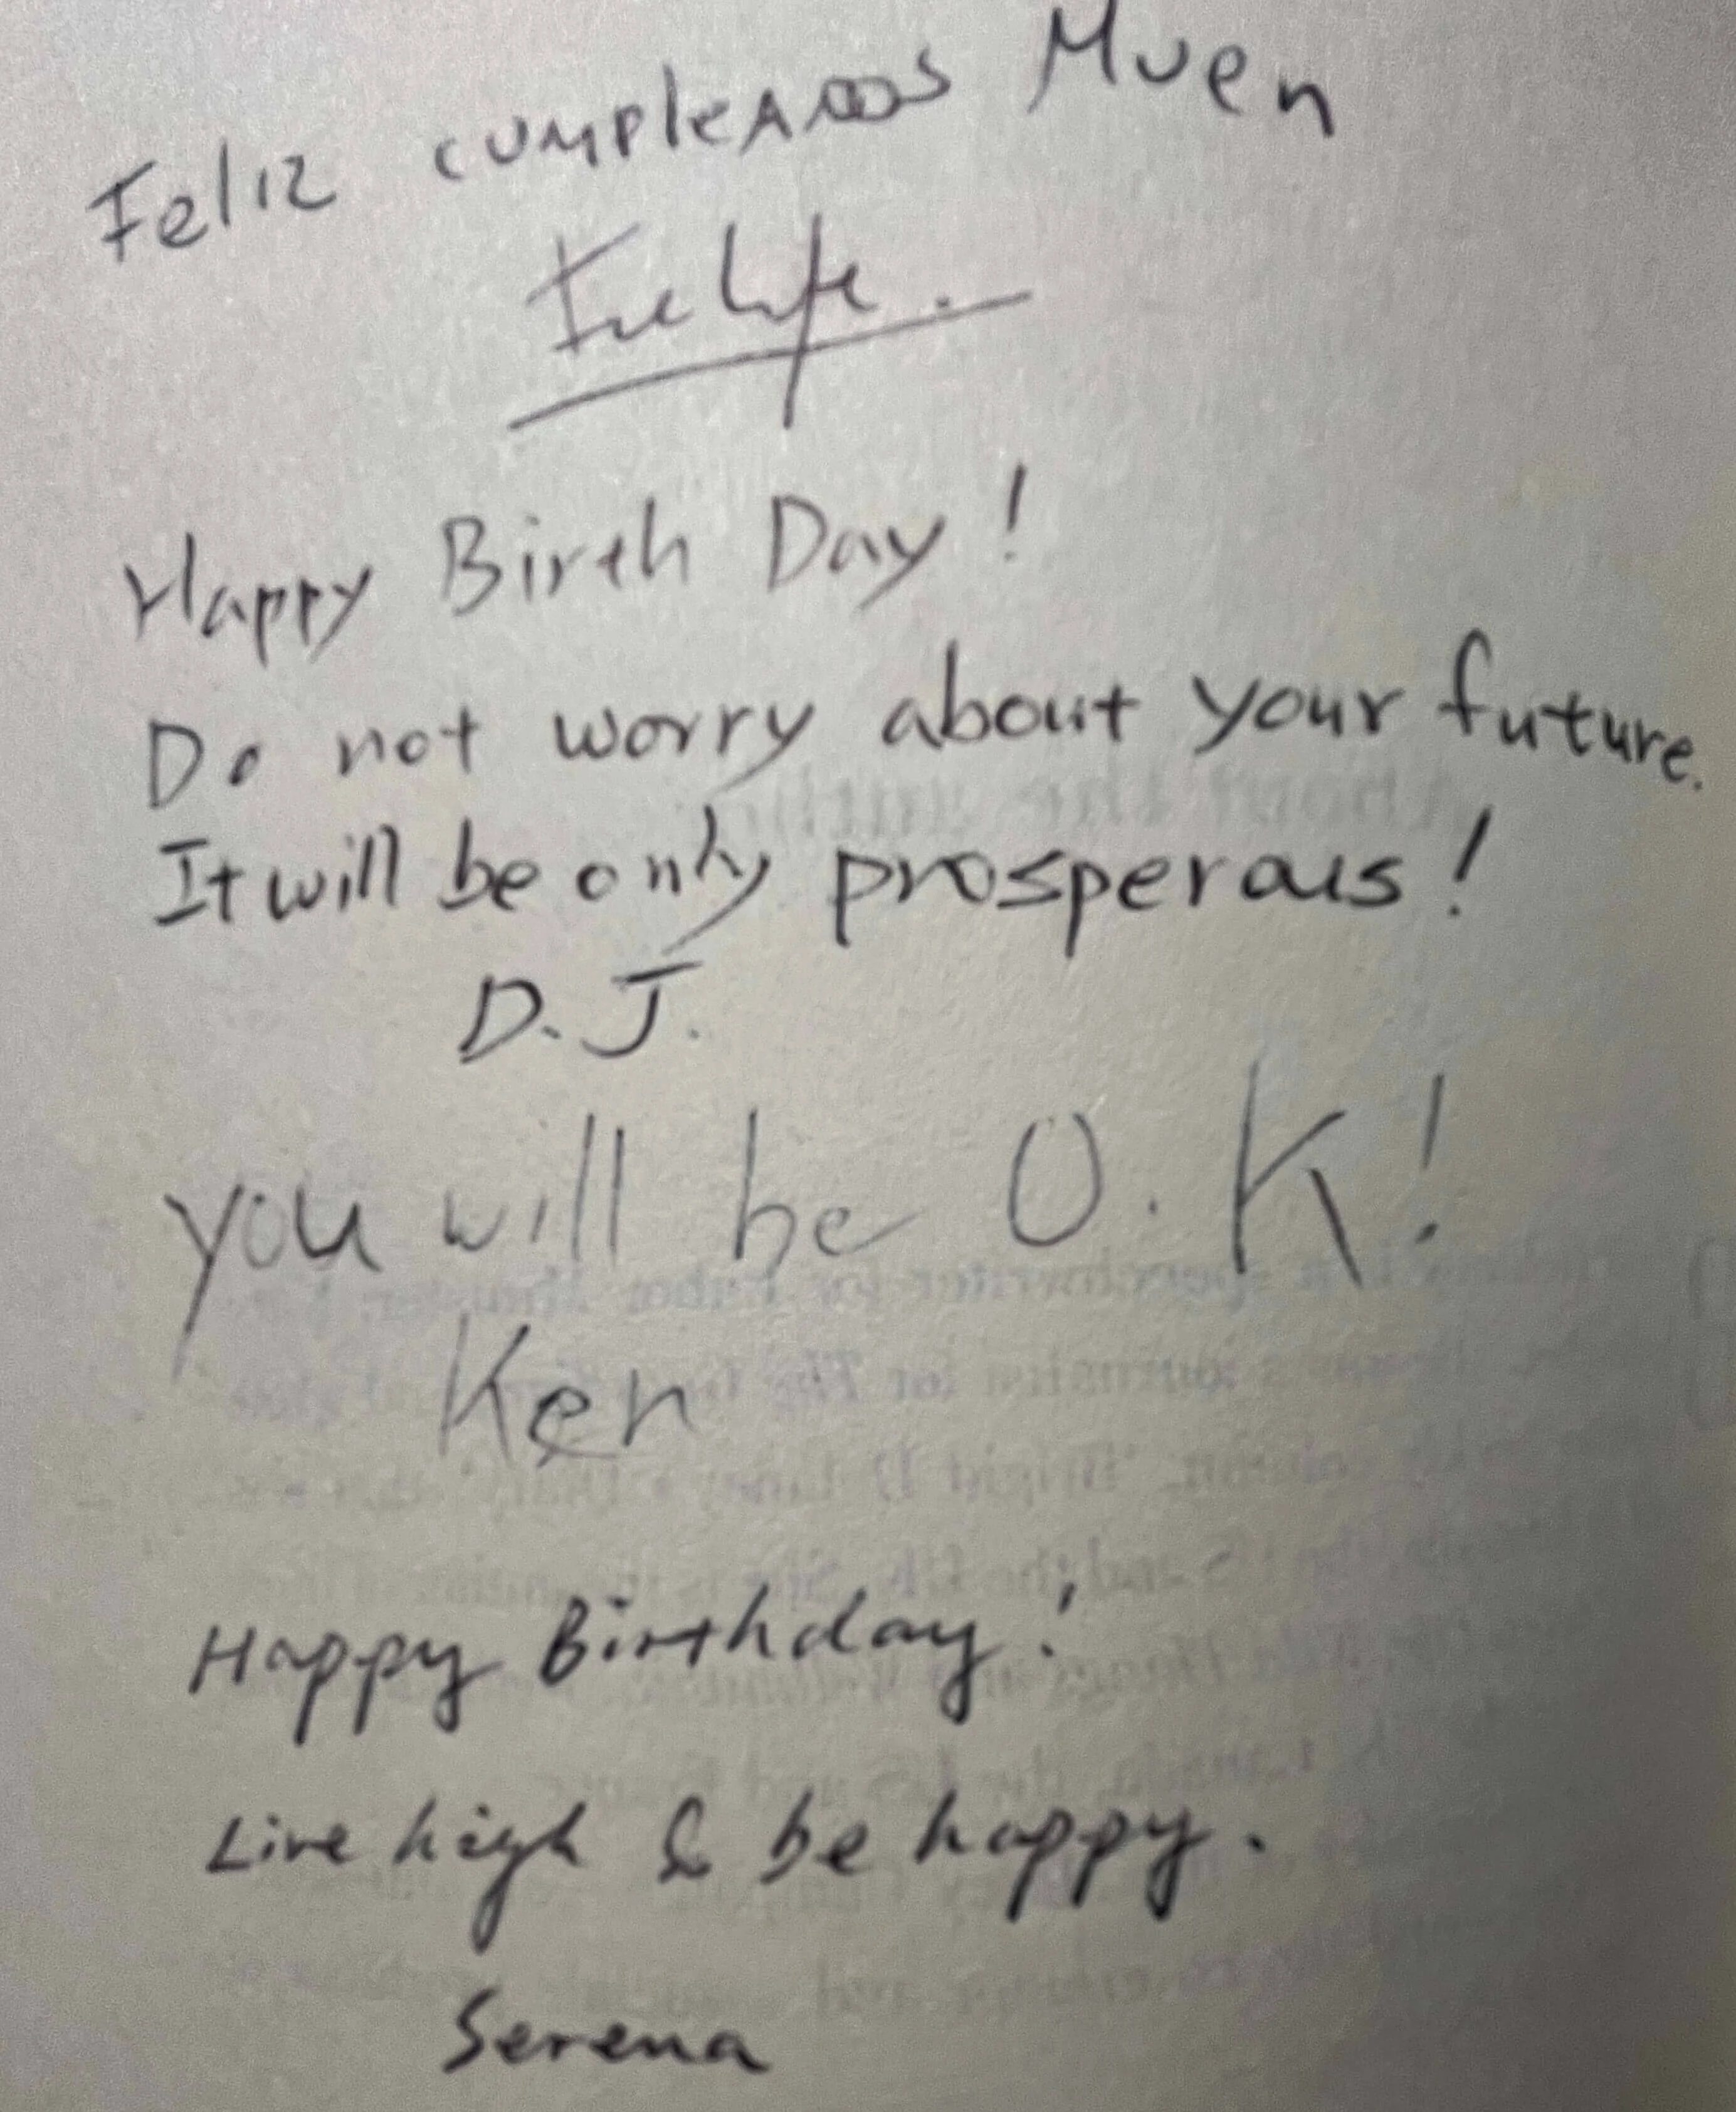 Feliz cumpleAños Muen
Happy Birth Day!
Do not worry about your future.
It will be only prosperous!
D.J.
you will be O.K!
Ken
Happy Birthday!
Live high & be happy.
Serena